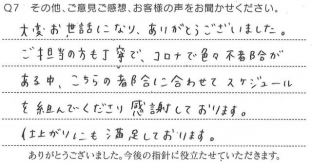 Q7 その他、ご意見ご感想、お客様の声をお聞かせください。
大変お世話になり、ありがとうございました。
ご担当の方も丁寧で、コロナで色々不都合が
ある中、こちらの都合に合わせてスケジュール
を組んでくださり感謝しております。
仕上がりにも満足しております。
ありがとうございました。今後の指針に役立たせていただきます。